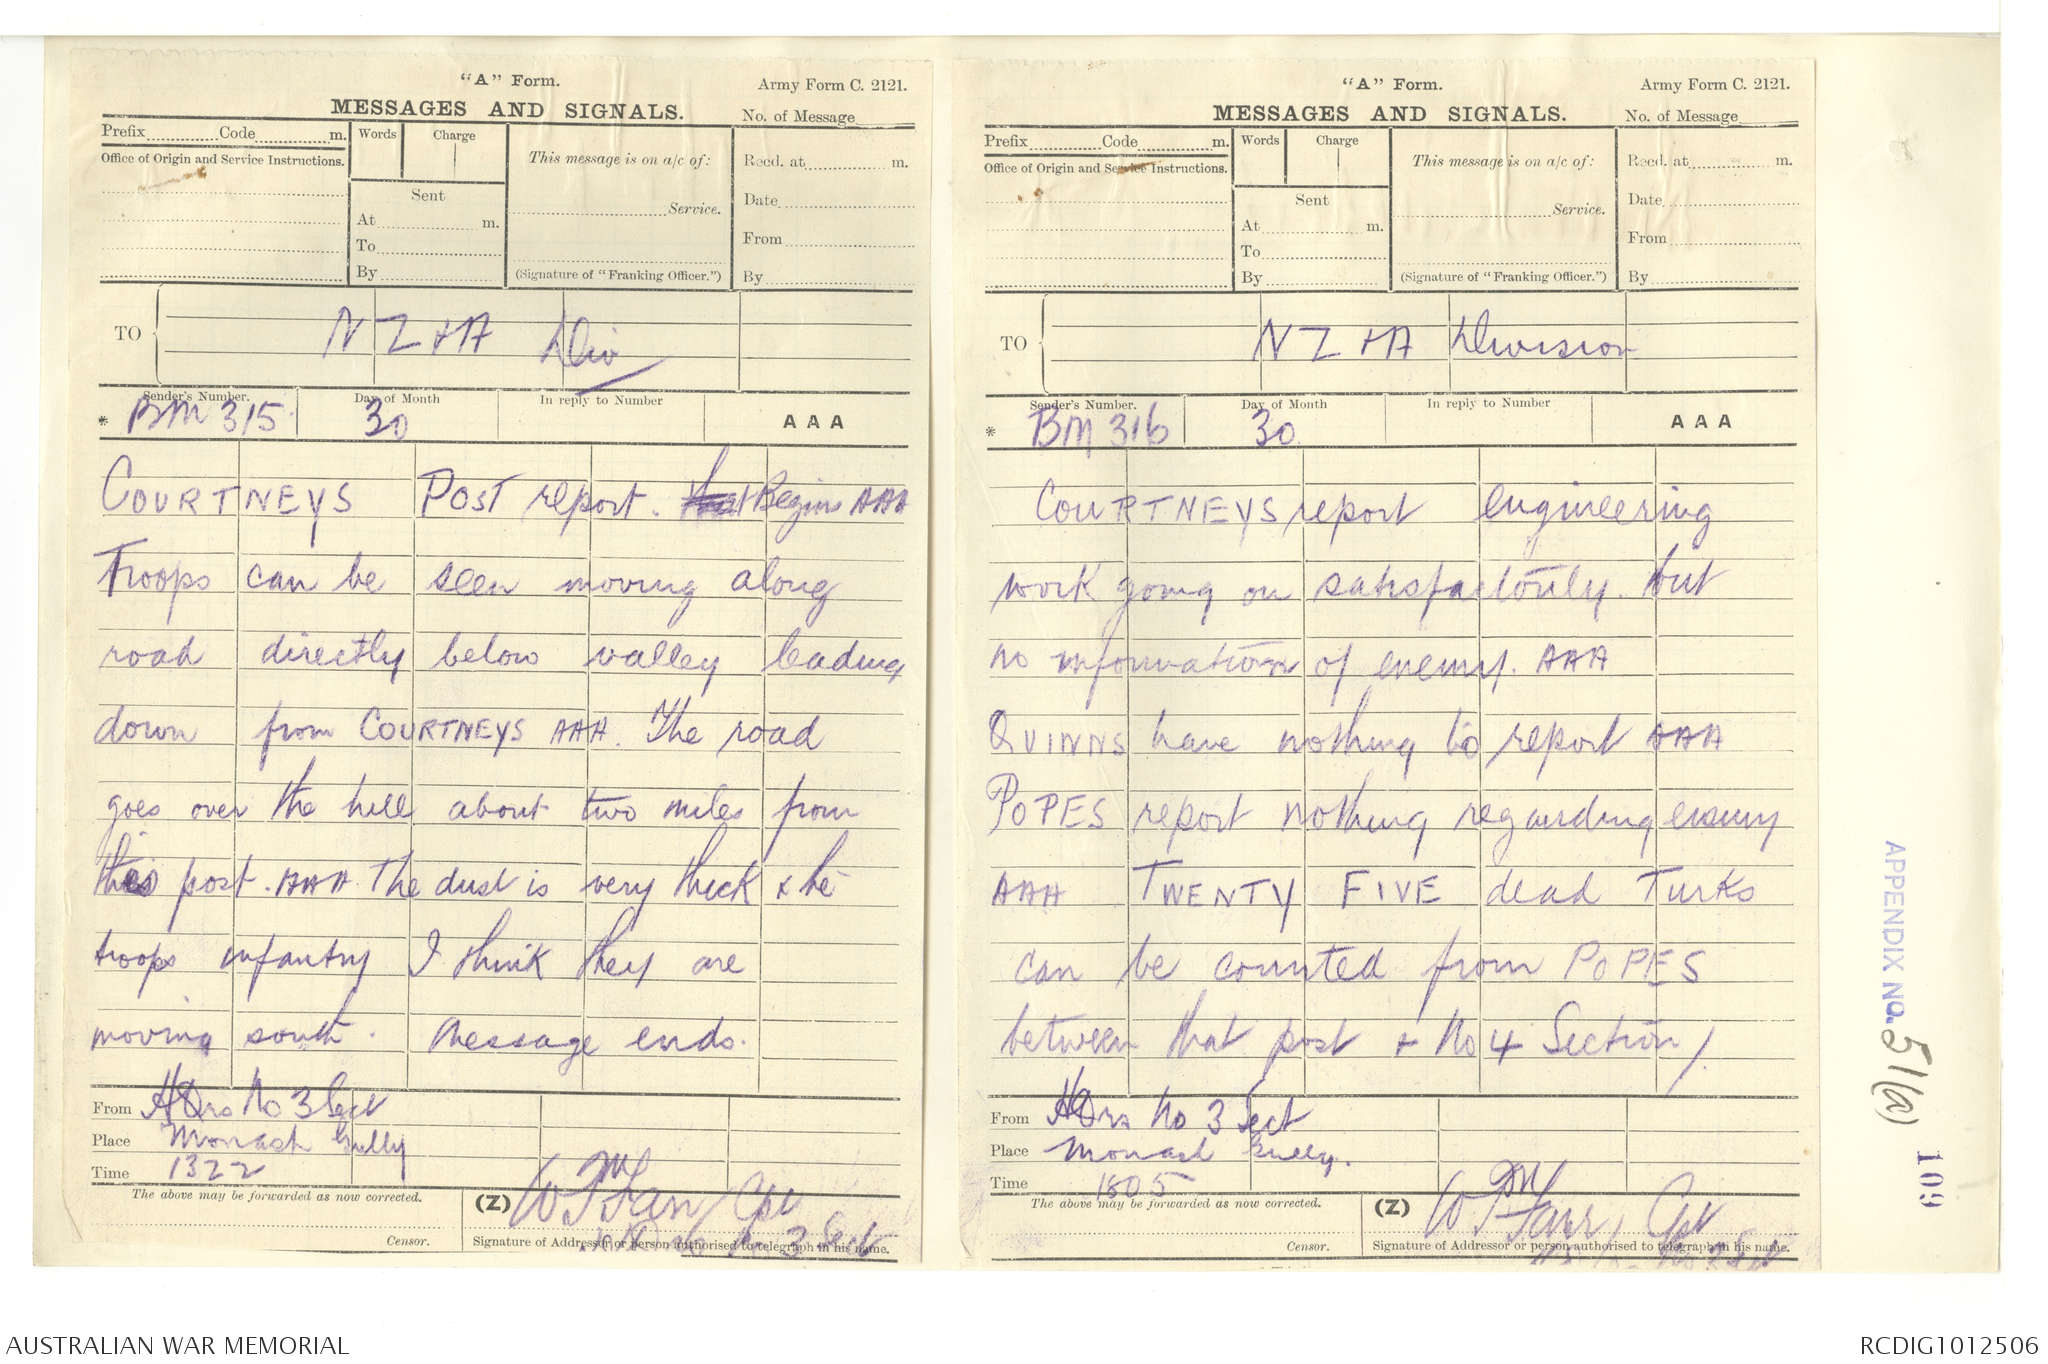 "A" Form.
Army Form C. 2121.
MESSAGES AND SIGNALS.
No. of Message
Prefix Code m.
Words Charge
This message is on a/c of:
Recd. at m.
Office of Origin and Service Instructions.
Sent
Service.
Date
At m.
To
From
By
(Signature of "Franking Officer.")
By
TO
NZ & A Div
Sender's Number.
Day of Month
In reply to Number
AAA
* BM 315
30
COURTNEYS POST report. Begins AAA
Troops can be seen moving along
road directly below valley leading
down from COURTNEYS AAA. The road
goes over the hill about two miles from
this post. AAA The dust is very thick & the
troops infantry I think they are
moving south. Message ends.
From HQrs No 3 Sect
Place Monash Gully
Time 1322
The above may be forwarded as now corrected.
(Z)
Capt
3 Sect
Censor.
Signature of Addressor or person authorised to telegraph in his name.
"A" Form.
Army Form C. 2121.
MESSAGES AND SIGNALS.
No. of Message
Prefix Code m.
Words Charge
This message is on a/c of:
Recd. at m.
Office of Origin and Service Instructions.
Sent
Service.
Date
At m.
To
From
By
(Signature of "Franking Officer.")
By
TO
NZ & A Division
Sender's Number.
Day of Month
In reply to Number
AAA
* BM 316
30
COURTNEYS report engineering
work going on satisfactorily. but
no information of enemy. AAA
QUINNS have nothing to report AAA
POPES report nothing regarding enemy
AAA TWENTY FIVE dead Turks
can be counted from POPES
between that post & No 4 Section/
From HQrs No 3 Sect
Place Monash Gully.
Time 1805
The above may be forwarded as now corrected.
(Z)
Capt
Censor.
Signature of Addressor or person authorised to telegraph in his name.
APPENDIX No. 51(a)
109
AUSTRALIAN WAR MEMORIAL
RCDIG1012506